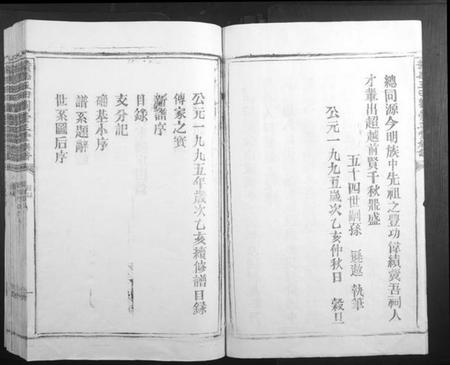 總同源今明族中先祖之豐功偉績實吾祠人
才輩出超越前賢千秋龍盛
五十四世嗣孫 執筆
公元一九九五歲次乙亥仲秋日 穀旦
公元一九九五年歲次乙亥續修譜目錄
傳家之寶
新譜序
目錄
支分記
硇基小序
譜系題辭
世系圖后序